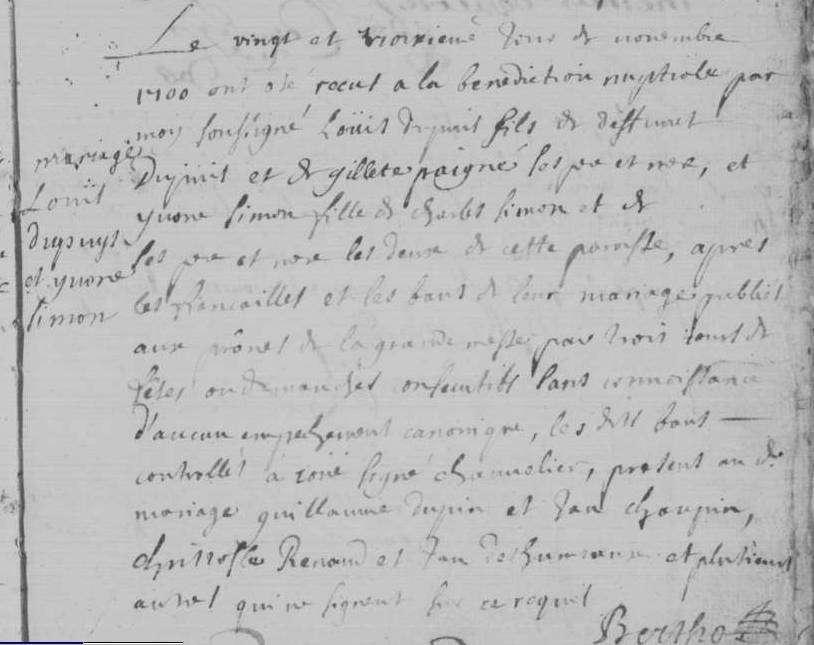 Le vingt et troixieme Jour de novembre
1700 ont esté recut a la benediction nuptiale par
moy soussigné Loüis dupuit fils de deffunct
mariage
Dupuit et de gillete paigné ses pe et mere, et
Louis
yvone simon fille de charles simon et de
dupuys
ses pe et mere les deux de cette paroisse, apres
et yvone
les fiencailles et les bans de leur mariage publiés
simon
aux prônes de la grande messe par trois jours de
fêtes ou dimanches consecutifs sans connoissance
d'aucun empechement canonique, les dits bans
controllés à signé chevalier, present au dt
mariage guillaume dupin et Jan chaupin,
christofle Renaud et Jan et plusieurs
autres qui ne signent sur ce requis
Bertho